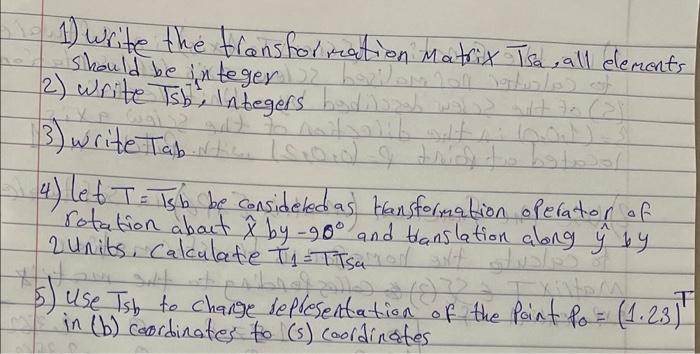 1) Write the transformation Matrix Tsa, all elements
should be integer
2) Write Tsb⁻¹, Integers
3) write Tab
4) let T = Tsb be considered as transformation operator of
rotation about x̂ by -90° and translation along ŷ by
2 units. Calculate T1 = TTsa
5) Use Tsb to change representation of the point Po = (1.23)ᵀ
in (b) coordinates to (s) coordinates